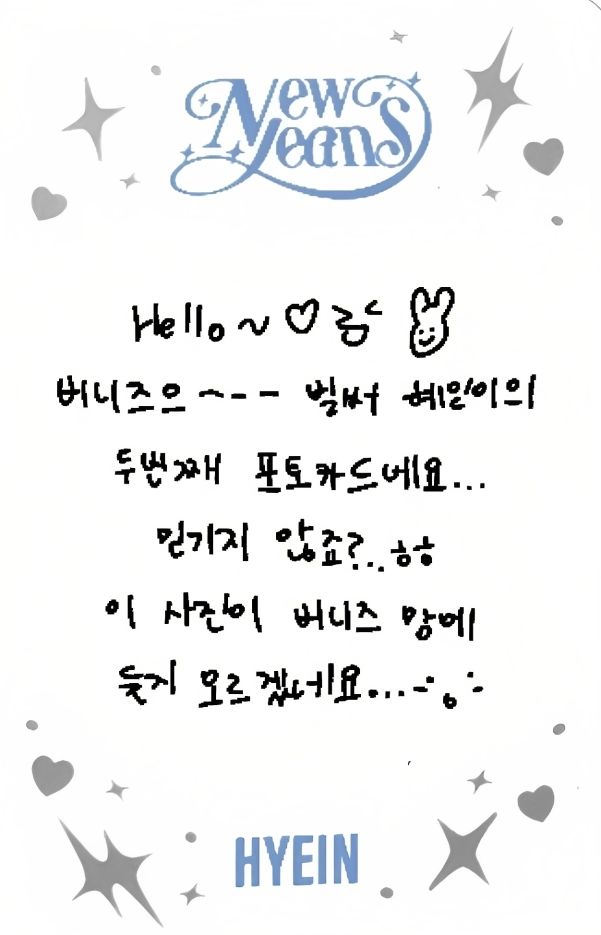 New Jeans
Hello~♡ 룸ᄂ
버니즈으~-- 벌써 혜인이의
두번째 포토카드네요...
믿기지 않죠?..ㅎㅎ
이 사진이 버니즈 맘에
들지 모르겠네요...
HYEIN